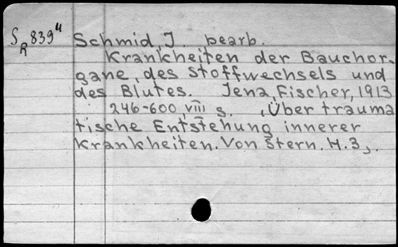 S 839⁴ Schmid, J. bearb.
R
Krankheiten der Bauchor-
gane, des Stoffwechsels und
des Blutes. Jena, Fischer, 1913
246-600, viii s. (Über trauma
tische Entstehung innerer
Krankheiten. Von Stern. H.3).